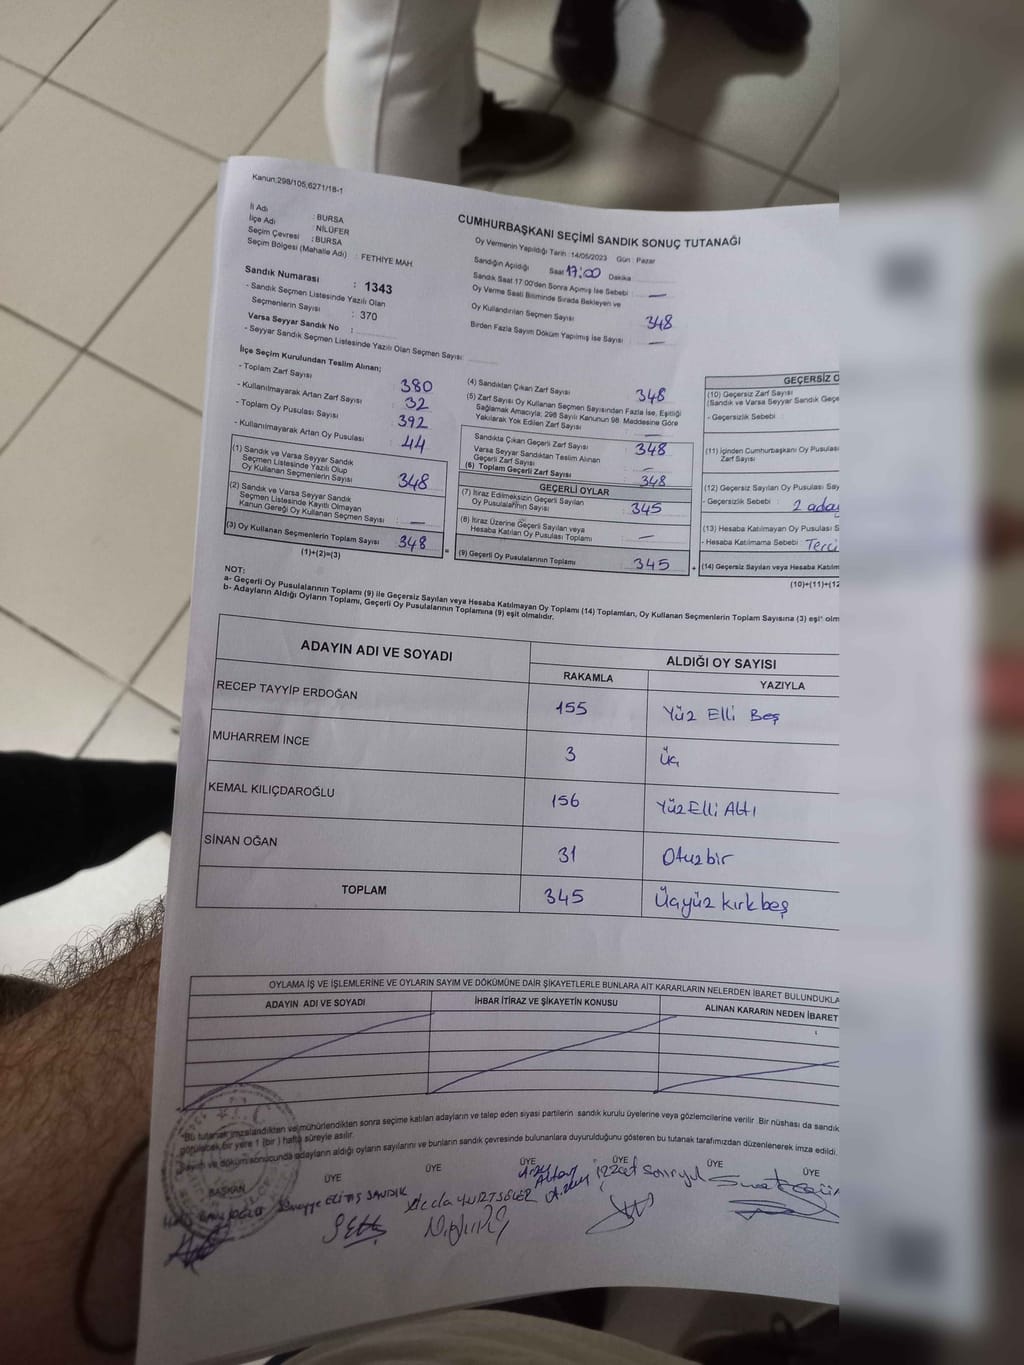 Kanun;298/105,6271/18-1
İl Adı : BURSA
İlçe Adı : NİLÜFER
Seçim Çevresi : BURSA
Seçim Bölgesi (Mahalle Adı) : FETHİYE MAH.
Sandık Numarası : 1343
- Sandık Seçmen Listesinde Yazılı Olan
Seçmenlerin Sayısı : 370
Varsa Seyyar Sandık No :
- Seyyar Sandık Seçmen Listesinde Yazılı Olan Seçmen Sayısı :
CUMHURBAŞKANI SEÇİMİ SANDIK SONUÇ TUTANAĞI
Oy Vermenin Yapıldığı Tarih : 14/05/2023 Gün : Pazar
Sandığın Açıldığı Saat 17:00 Dakika
Sandık Saat 17.00'den Sonra Açılmış İse Sebebi : —
Oy Verme Saati Bitiminde Sırada Bekleyen ve
Oy Kullandırılan Seçmen Sayısı : 348
Birden Fazla Sayım Döküm Yapılmış İse Sayısı : —
İlçe Seçim Kurulundan Teslim Alınan;
- Toplam Zarf Sayısı : 380
- Kullanılmayarak Artan Zarf Sayısı : 32
- Toplam Oy Pusulası Sayısı : 392
- Kullanılmayarak Artan Oy Pusulası : 44
(1) Sandık ve Varsa Seyyar Sandık
Seçmen Listesinde Yazılı Olup
Oy Kullanan Seçmenlerin Sayısı : 348
(2) Sandık ve Varsa Seyyar Sandık
Seçmen Listesinde Kayıtlı Olmayan
Kanun Gereği Oy Kullanan Seçmen Sayısı : —
(3) Oy Kullanan Seçmenlerin Toplam Sayısı : 348
(1)+(2)=(3)
(4) Sandıktan Çıkan Zarf Sayısı : 348
(5) Zarf Sayısı Oy Kullanan Seçmen Sayısından Fazla İse, Eşitliği
Sağlamak Amacıyla; 298 Sayılı Kanunun 98. Maddesine Göre
Yakılarak Yok Edilen Zarf Sayısı : —
Sandıkta Çıkan Geçerli Zarf Sayısı : 348
Varsa Seyyar Sandıktan Teslim Alınan
Geçerli Zarf Sayısı : —
(6) Toplam Geçerli Zarf Sayısı : 348
GEÇERLİ OYLAR
(7) İtiraz Edilmeksizin Geçerli Sayılan
Oy Pusulalarının Sayısı : 345
(8) İtiraz Üzerine Geçerli Sayılan veya
Hesaba Katılan Oy Pusulası Toplamı : —
(9) Geçerli Oy Pusulalarının Toplamı : 345
GEÇERSİZ O
(10) Geçersiz Zarf Sayısı
(Sandık ve Varsa Seyyar Sandık Geçe
- Geçersizlik Sebebi :
(11) İçinden Cumhurbaşkanı Oy Pusulas
Zarf Sayısı
(12) Geçersiz Sayılan Oy Pusulası Say
- Geçersizlik Sebebi : 2 aday
(13) Hesaba Katılmayan Oy Pusulası S
- Hesaba Katılmama Sebebi : Terci
(14) Geçersiz Sayılan veya Hesaba Katılm
(10)+(11)+(12
NOT:
a- Geçerli Oy Pusulalarının Toplamı (9) ile Geçersiz Sayılan veya Hesaba Katılmayan Oy Toplamı (14) Toplamları, Oy Kullanan Seçmenlerin Toplam Sayısına (3) eşit olm
b- Adayların Aldığı Oyların Toplamı, Geçerli Oy Pusulalarının Toplamına (9) eşit olmalıdır.
ADAYIN ADI VE SOYADI ALDIĞI OY SAYISI
RAKAMLA YAZIYLA
RECEP TAYYİP ERDOĞAN 155 Yüz Elli Beş
MUHARREM İNCE 3 Üç
KEMAL KILIÇDAROĞLU 156 Yüz Elli Altı
SİNAN OĞAN 31 Otuzbir
TOPLAM 345 Üçyüz kırk beş
OYLAMA İŞ VE İŞLEMLERİNE VE OYLARIN SAYIM VE DÖKÜMÜNE DAİR ŞİKAYETLERLE BUNLARA AİT KARARLARIN NELERDEN İBARET BULUNDUKLA
ADAYIN ADI VE SOYADI İHBAR İTİRAZ VE ŞİKAYETİN KONUSU ALINAN KARARIN NEDEN İBARET
*Bu tutanak imzalandıktan ve mühürlendikten sonra seçime katılan adayların ve talep eden siyasi partilerin sandık kurulu üyelerine veya gözlemcilerine verilir. Bir nüshası da sandık
görülecek bir yere 1 (bir) hafta süreyle asılır.
Sayım ve döküm sonucunda adayların aldığı oyların sayılarını ve bunların sandık çevresinde bulunanlara duyurulduğunu gösteren bu tutanak tarafımızdan düzenlenerek imza edildi.
BAŞKAN ÜYE ÜYE ÜYE ÜYE ÜYE ÜYE